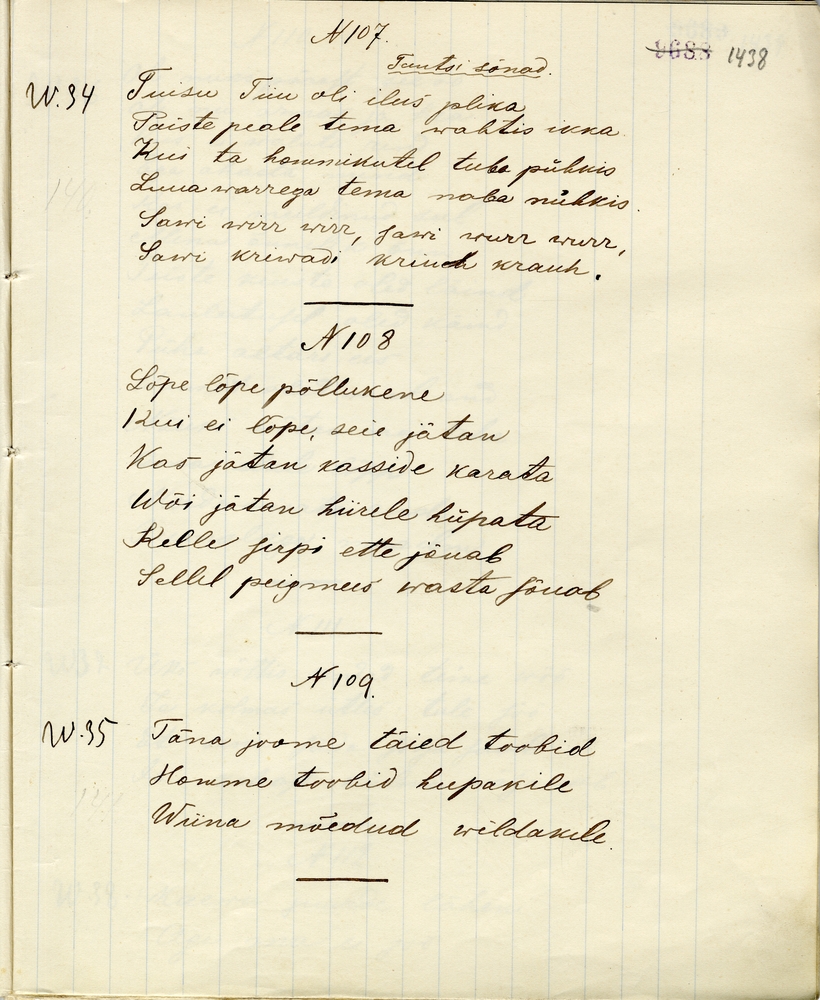 N 107.
9683 1438
Tantsi sõnad.
W. 34 Tuisu Tiiu oli ilus plika
Päiste peale tema wahtis ikka
Kui ta hommikutel tuba pühkis
Luua warrega tema naba nühkis.
Sawi wirr wirr, sawi wurr wurr,
Sawi kriwadi krauh.
N 108
Lõpe lõpe põllukene
Kui ei lõpe, seie jätan
Kas jätan kasside karata
Wõi jätan hiirele hüpata
Kelle sirpi ette jõuab
Sellel peigmees wasta sõuab
N 109.
W. 35 Täna joome täied toobid
Homme toobid kupakile
Wiina mõedud wildakile.